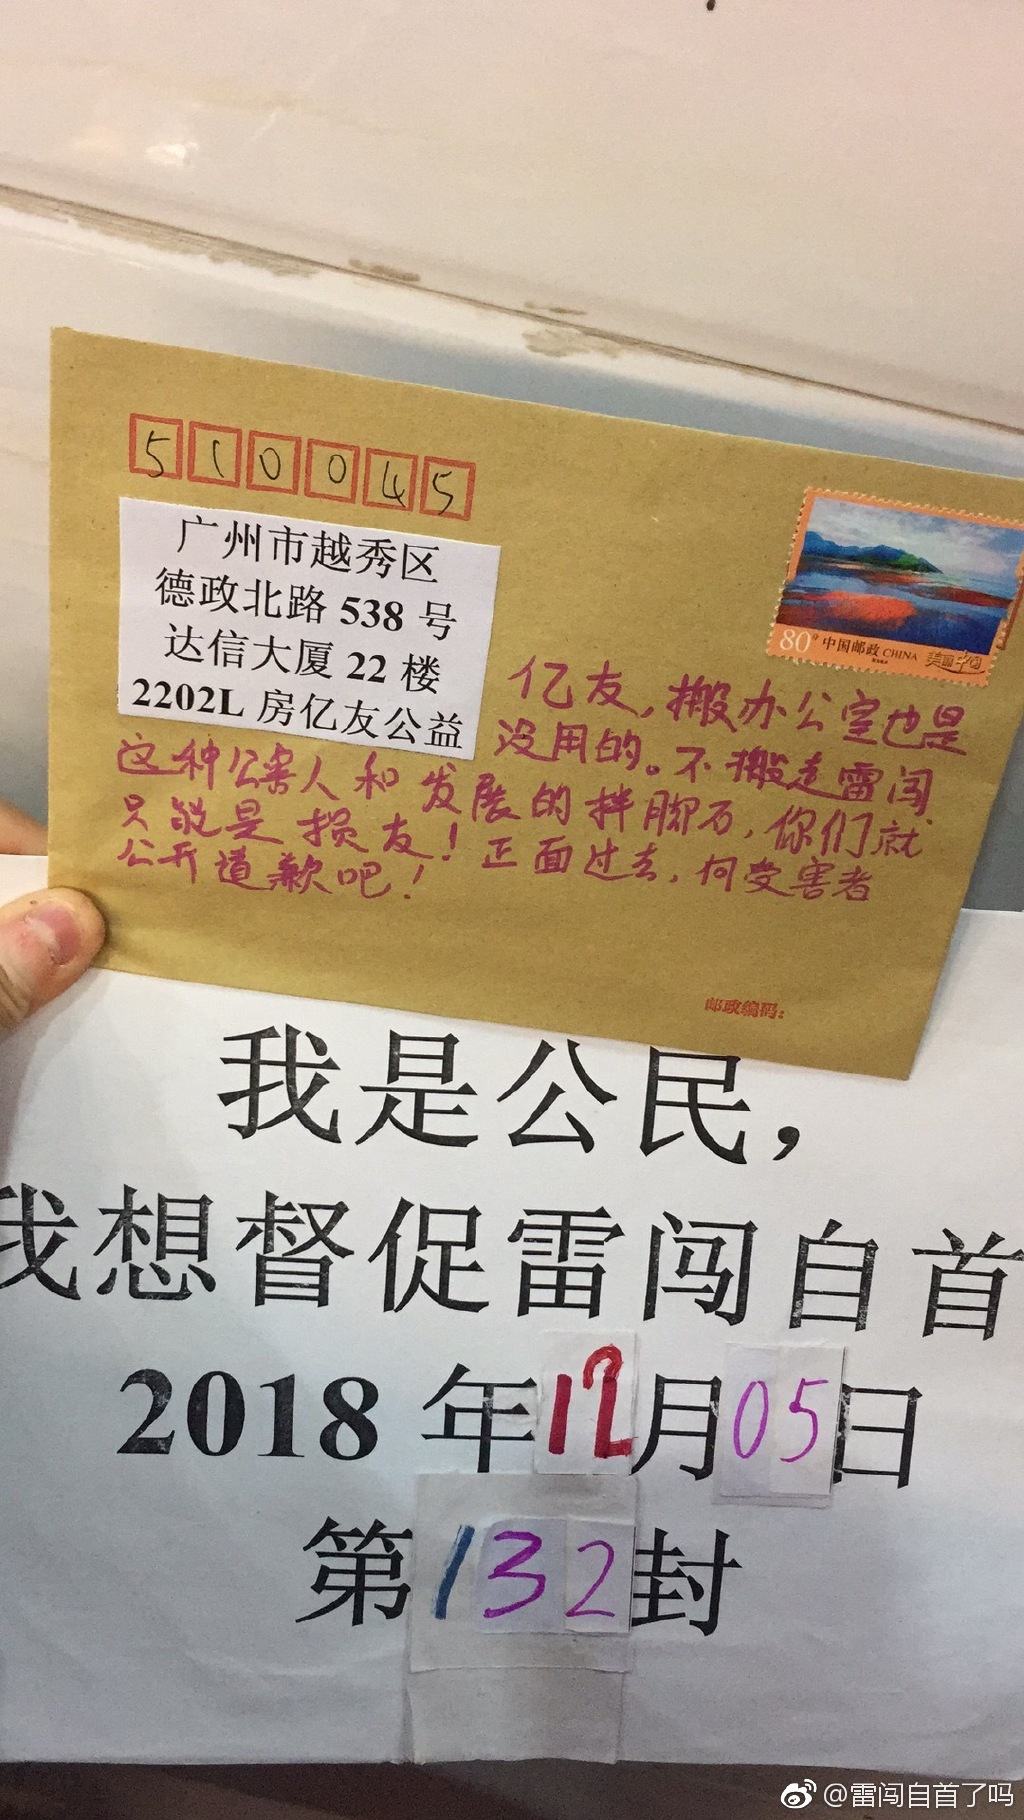 510045
广州市越秀区
德政北路 538 号
达信大厦 22 楼
2202L 房亿友公益
80分 中国邮政 CHINA 美丽中国
亿友,搬办公室也是
没用的。不搬走雷闯
这种公害人和发展的拌脚石,你们就
只能是损友!正面过去,向受害者
公开道歉吧!
邮政编码:
我是公民,
我想督促雷闯自首
2018 年12月05日
第132封
@雷闯自首了吗